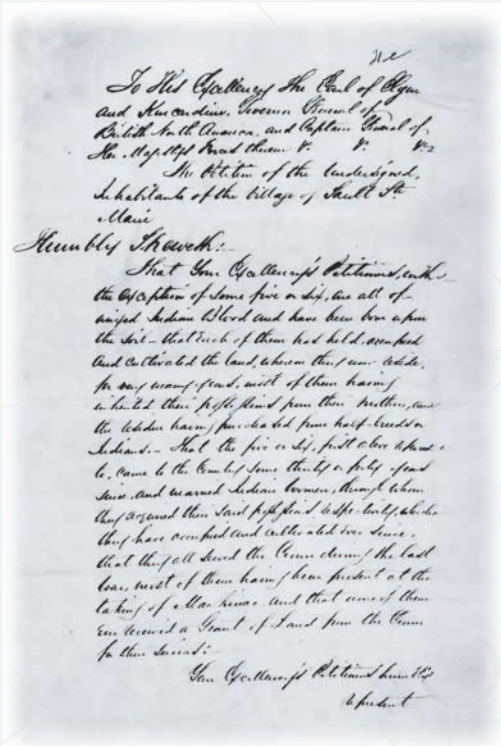 To His Excellency the Earl of Elgin
and Kincardine, Governor General of
British North America, and Captain General of
Her Majesty's Forces therein &c &c &c
The Petition of the Undersigned,
Inhabitants of the Village of Sault Ste
Marie
Humbly Sheweth:-
That Your Excellency's Petitioners, with
the exception of some five or six, are all of
mixed Indian Blood and have been born upon
the soil - that each of them has held, occupied
and cultivated the land, whereon they now reside,
for very many years, most of them having
inherited their possessions from their mothers, and
the residue having purchased from half-breeds or
Indians. - That the five or six, first above
to, came to the Country some thirty or forty years
since, and married Indian women, through whom
they acquired their said possessions respectively, which
they have occupied and cultivated ever since.
that they all served the Crown during the last
war, most of them having been present at the
taking of Mackinac and that none of them
ever received a Grant of Land from the Crown
for their services:-
Your Excellency's Petitioners
represent